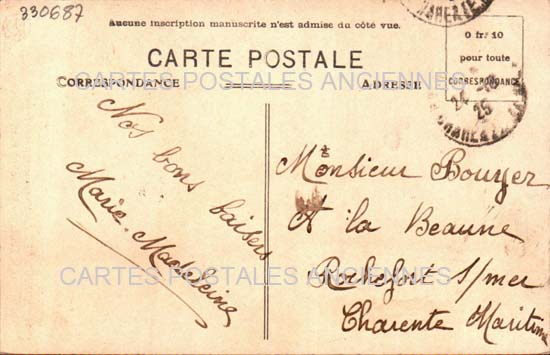 330687
Aucune inscription manuscrite n'est admise du côté vue.
CARTE POSTALE
CORRESPONDANCE
ADRESSE
0 fr 10
pour toute
CORRESPONDANCE
CARTES POSTALES ANCIENNES
Nos bons baisers
Marie-Madeleine
Monsieur Bouyer
A la Beaune
Rochefort s/mer
Charente Maritime
CARTES POSTALES ANCIENNES